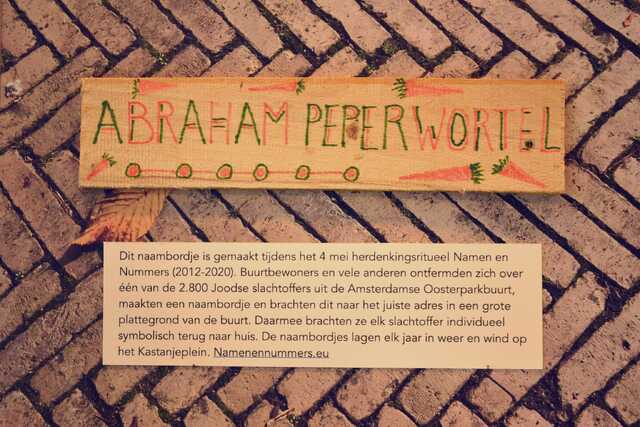 ABRAHAM PEPERWORTEL
Dit naambordje is gemaakt tijdens het 4 mei herdenkingsritueel Namen en
Nummers (2012-2020). Buurtbewoners en vele anderen ontfermden zich over
één van de 2.800 Joodse slachtoffers uit de Amsterdamse Oosterparkbuurt,
maakten een naambordje en brachten dit naar het juiste adres in een grote
plattegrond van de buurt. Daarmee brachten ze elk slachtoffer individueel
symbolisch terug naar huis. De naambordjes lagen elk jaar in weer en wind op
het Kastanjeplein. Namenennummers.eu